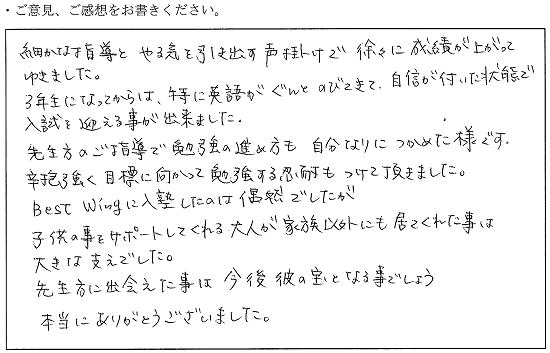 ・ご意見、ご感想をお書きください。
細かな指導と やる気を引き出す声掛けで 徐々に成績が上がって
ゆきました。
3年生になってからは、特に英語がぐんとのびてきて、自信が付いた状態で
入試を迎える事が出来ました。
先生方のご指導で勉強の進め方も 自分なりにつかめた様です。
辛抱強く目標に向かって勉強する忍耐もつけて頂きました。
Best Wingに入塾したのは偶然でしたが
子供の事をサポートしてくれる大人が家族以外にも居てくれた事は
大きな支えでした。
先生方に出会えた事は 今後 彼の宝となる事でしょう
本当にありがとうございました。